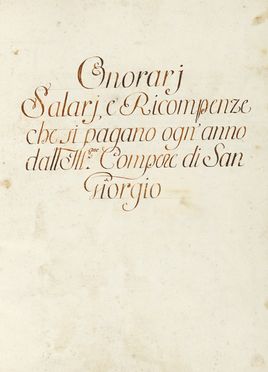 Onorarj
Salarj, e Ricompenze
che si pagano ogn'anno
dall'Ill.me Compere di San
Giorgio